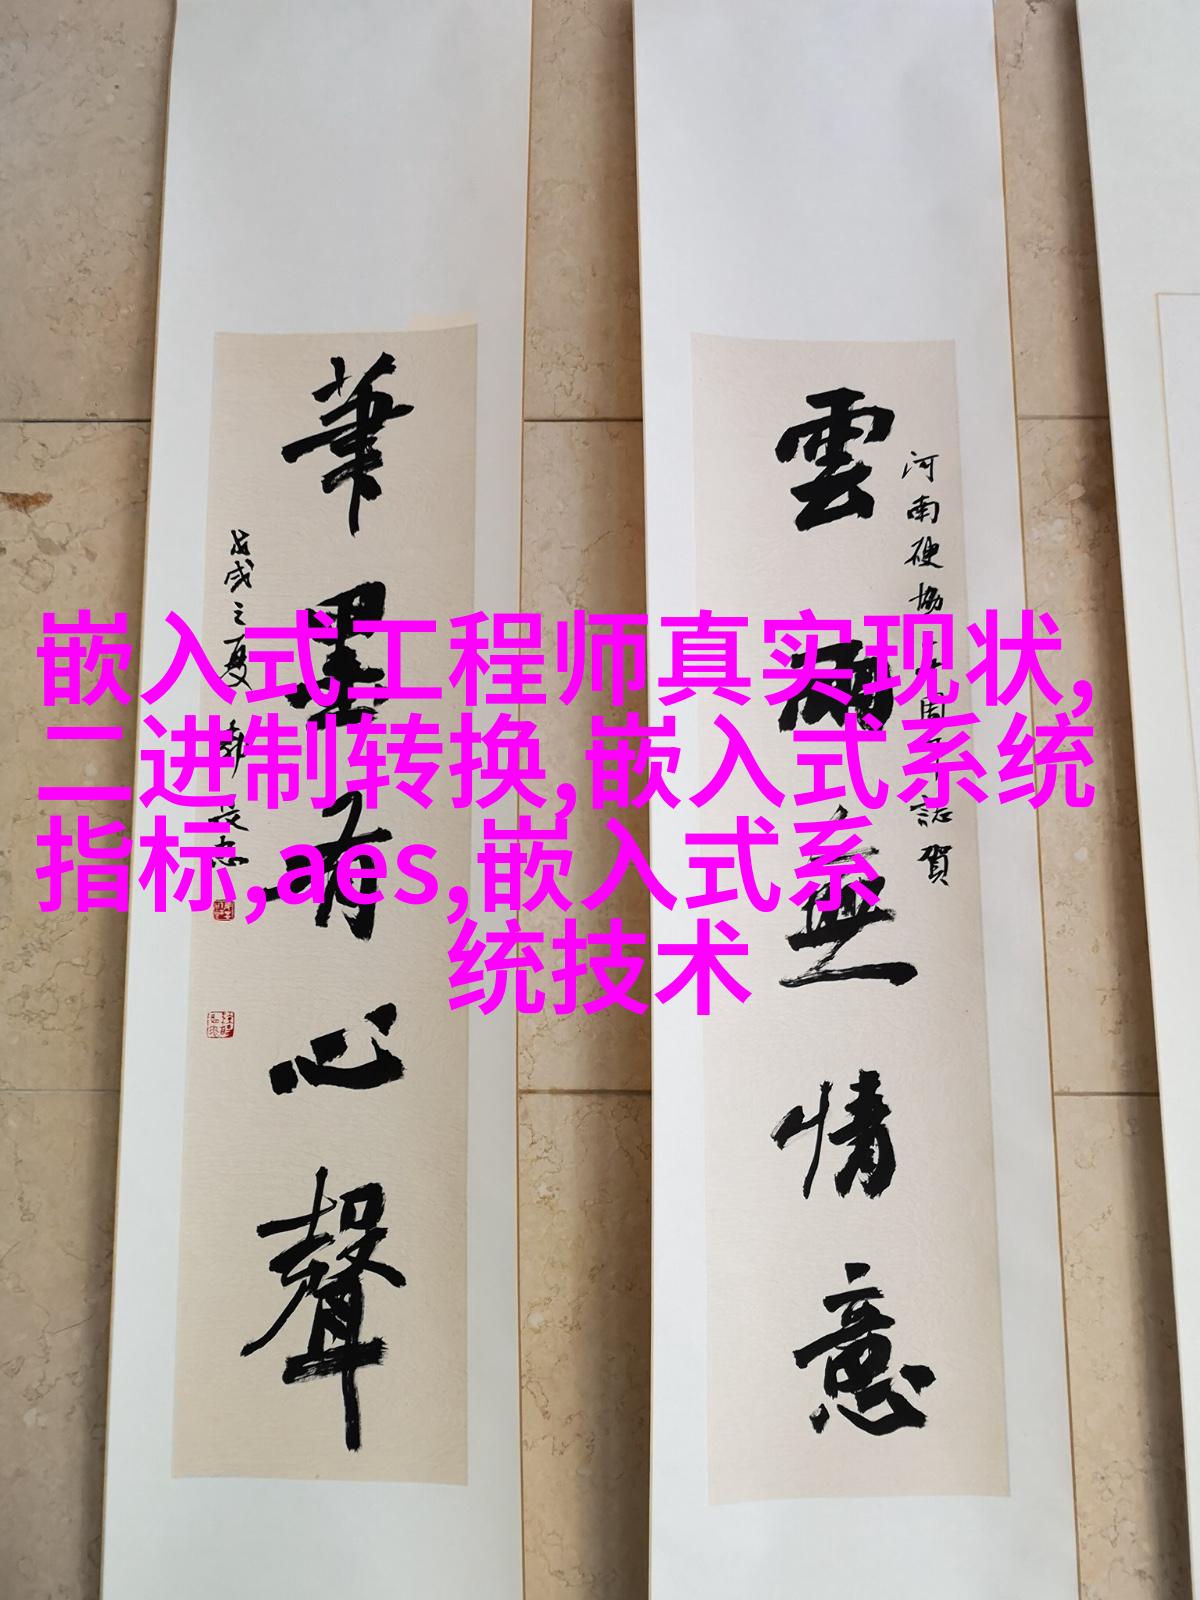 雲雨無情意
河南硬協十周年誌賀
筆墨有心聲
戊戌之夏
嵌入式工程师真实现状,
二进制转换,嵌入式系统
指标,aes,嵌入式系
统技术